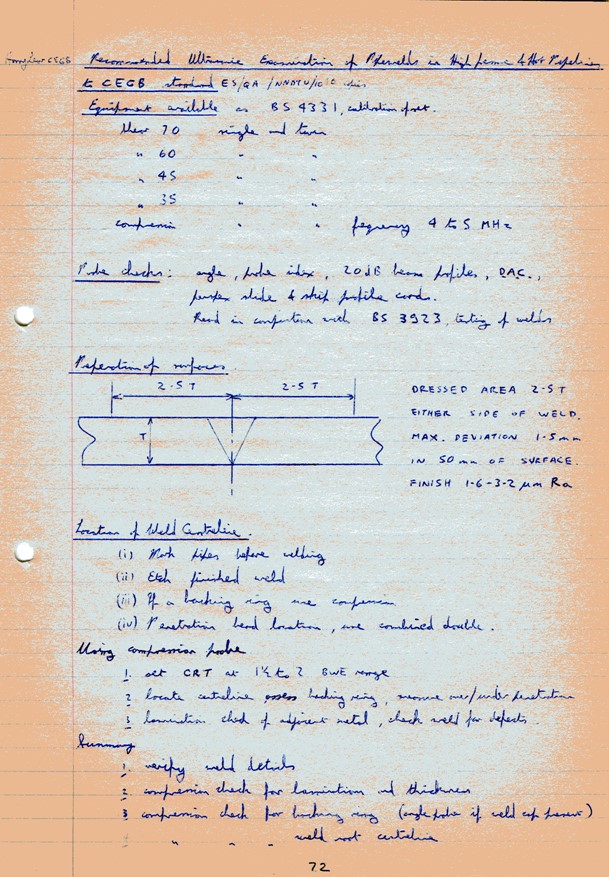 Recommended Ultrasonic Examination of Pipewelds in High Pressure & Hot Pipelines
to CEGB standard ES/QA/NNDTU/
Equipment available as BS 4331, calibration of set.
Shear 70 single and twin
" 60 " "
" 45 " "
" 35 " "
compression " " feqrency 4 to 5 MHz
Probe checks: angle, probe index, 20 dB beam profiles, D.A.C.,
perspex slide & strip profile cards.
Read in conjunction with BS 3923, testing of welds
Preperation of surfaces.
2.5 T 2.5 T
T
DRESSED AREA 2.5T
EITHER SIDE OF WELD.
MAX. DEVIATION 1.5mm
IN 50 mm OF SURFACE.
FINISH 1.6-3.2 μm Ra
Location of Weld Centreline.
(i) Mark pipes before welding
(ii) Etch finished weld
(iii) If a backing ring use compression
(iv) Penetration bead location, use combined double.
Using compression probe
1. set CRT at 1½ to 2 BWE range
2. locate centreline assess backing ring, measure over/under penetration
3. lamination check of adjacent metal, check weld for defects.
Summary
1. verify weld details
2. compression check for laminations and thickness
3. compression check for backing ring (angle probe if weld cap present)
" " " weld root centreline
72